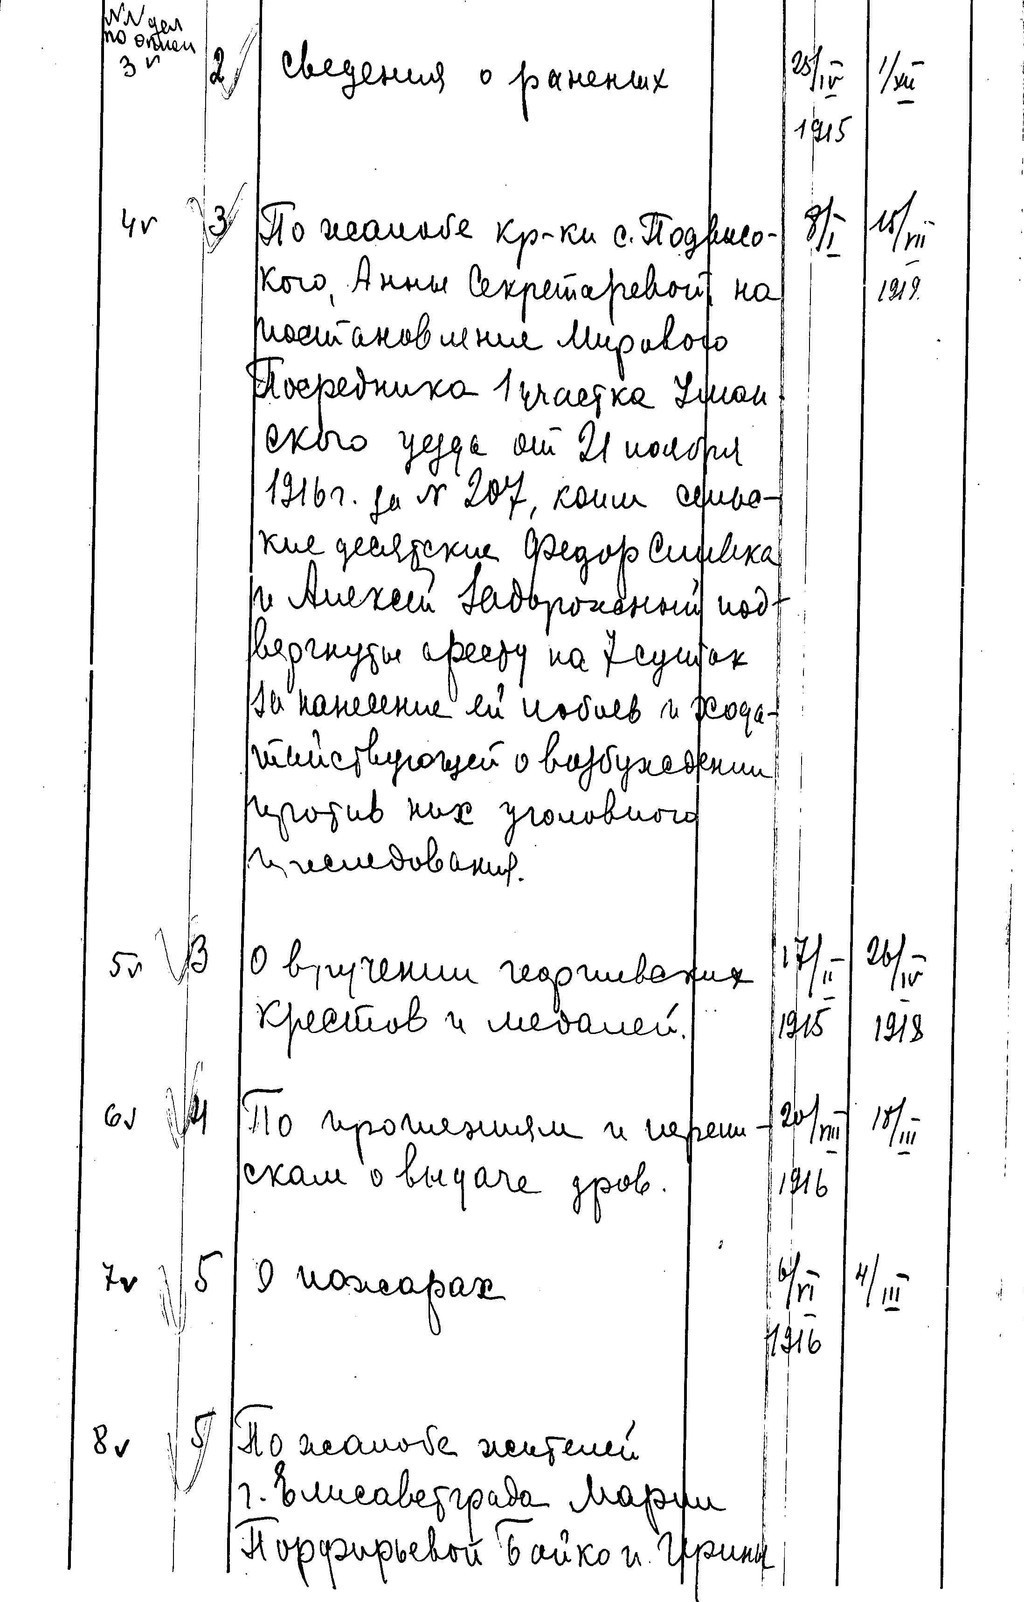 NN дел
по описи
3 v 2 Сведения о раненых 25/IV 1/XII
1915
4 v 3 По жалобе кр-ки с. Подвысо- 8/I 15/VII
кого, Анны Секретаревой, на 1919.
постановление Мирового
Посредника 1 участка Уман
ского уезда от 21 ноября
1916 г. за N 207, коим сельс-
кие десятские Федор Сливка
и Алексей Задорожный под-
вергнуты аресту на 7 суток
за нанесение ей побоев и хода-
тайствующей о возбуждении
против них уголовного
преследования.
5 v 3 О вручении георгиевских 17/II 26/IV
крестов и медалей. 1915 1918
6 v 4 По прошениям и перепи- 20/VIII 18/III
скам о выдаче дров. 1916
7 v 5 О пожарах 6/VI 4/III
1916
8 v 5 По жалобе жителей
г. Елисаветграда Марии
Порфирьевой Бойко и Ирины